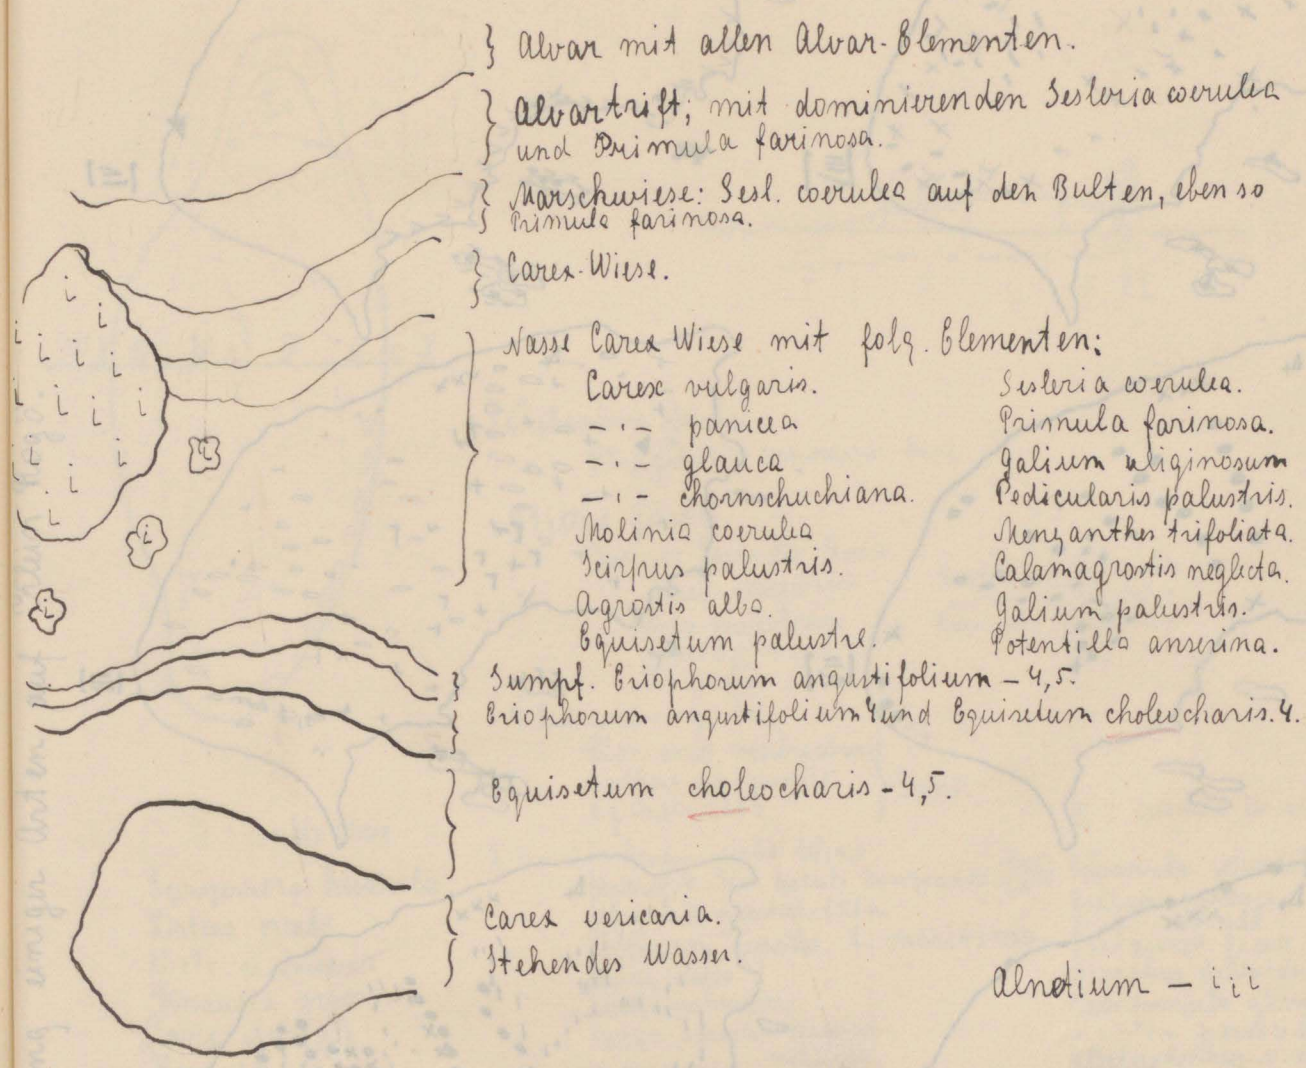 Alvar mit allen Alvar-Elementen.
Alvartrift; mit dominierenden Sesleria coerulea
und Primula farinosa.
Marschwiese: Sesl. coerulea auf den Bulten, ebenso
Primula farinosa.
Carex-Wiese.
Nasse Carex Wiese mit folg. Elementen:
Carex vulgaris.
-·- panicea
-·- glauca
-·- chornschuchiana.
Molinia coerulea
Scirpus palustris.
Agrostis alba.
Equisetum palustre.
Sesleria coerulea.
Primula farinosa.
Galium uliginosum
Pedicularis palustris.
Menyanthes trifoliata.
Calamagrostis neglecta.
Galium palustris.
Potentilla anserina.
Sumpf. Eriophorum angustifolium - 4,5.
Eriophorum angustifolium 4 und Equisetum choleocharis. 4.
Equisetum choleocharis - 4,5.
Carex vesicaria.
Stehendes Wasser.
Alnetium - i i i